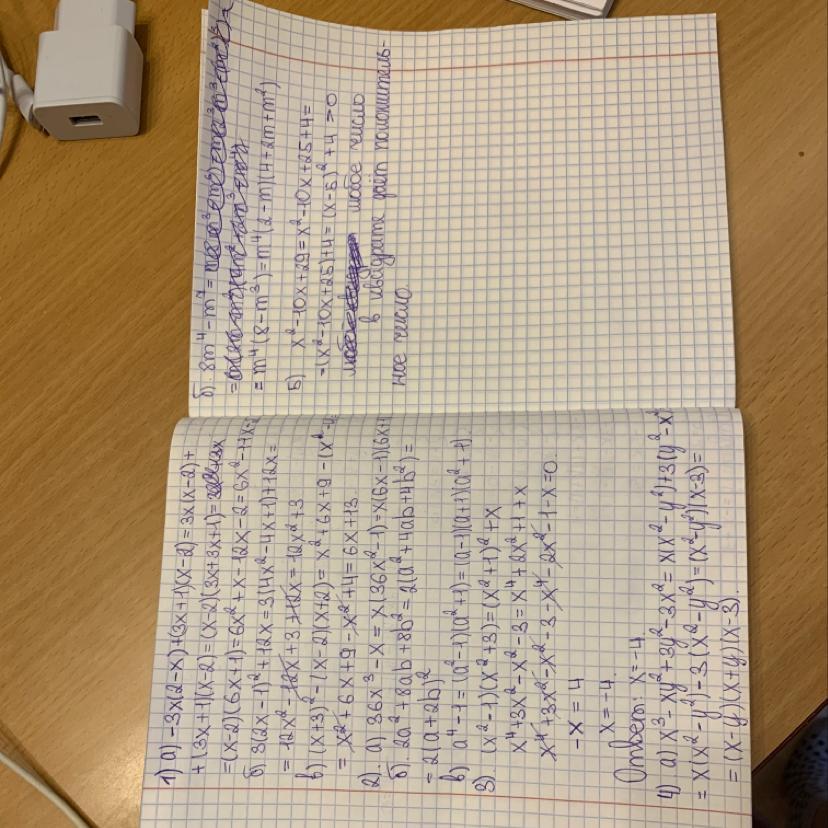 1) а) -3x(2-x)+(3x+1)(x-2)=3x(x-2)+
+(3x+1)(x-2)=(x-2)(3x+3x+1)=
=(x-2)(6x+1)=6x²+x-12x-2=6x²-11x-2
б) 3(2x-1)²+12x=3(4x²-4x+1)+12x=
=12x²-12x+3+12x=12x²+3
в) (x+3)²-(x-2)(x+2)=x²+6x+9-(x²-4)=
=x²+6x+9-x²+4=6x+13.
2). а) 36x³-x=x(36x²-1)=x(6x-1)(6x+1
б). 2a²+8ab+8b²=2(a²+4ab+4b²)=
=2(a+2b)²
в) a⁴-1=(a²-1)(a²+1)=(a-1)(a+1)(a²+1).
3) (x²-1)(x²+3)=(x²+1)²+x
x⁴+3x²-x²-3=x⁴+2x²+1+x
x⁴+3x²-x²-3-x⁴-2x²-1-x=0.
-x=4
x=-4.
Ответ: x=-4
4) а) x³-xy²+3y²-3x²=x(x²-y²)+3(y²-x²
=x(x²-y²)-3(x²-y²)=(x²-y²)(x-3)=
=(x-y)(x+y)(x-3).
б). 8m⁴-m⁷=
=m⁴(8-m³)=m⁴(2-m)(4+2m+m²)
5) x²-10x+29=x²-10x+25+4=
=(x²-10x+25)+4=(x-5)²+4>0
любое число
в квадрате даёт положитель-
ное число.